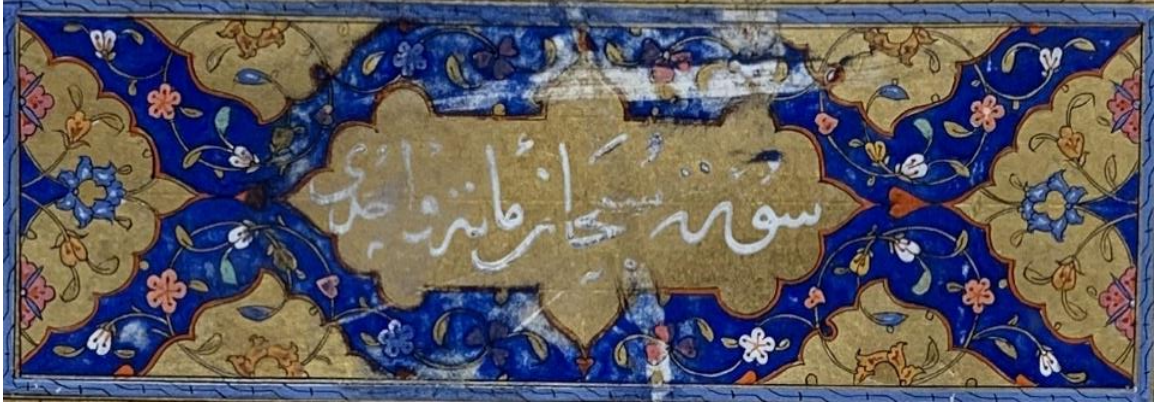 سورة سبحان مایة واحدی